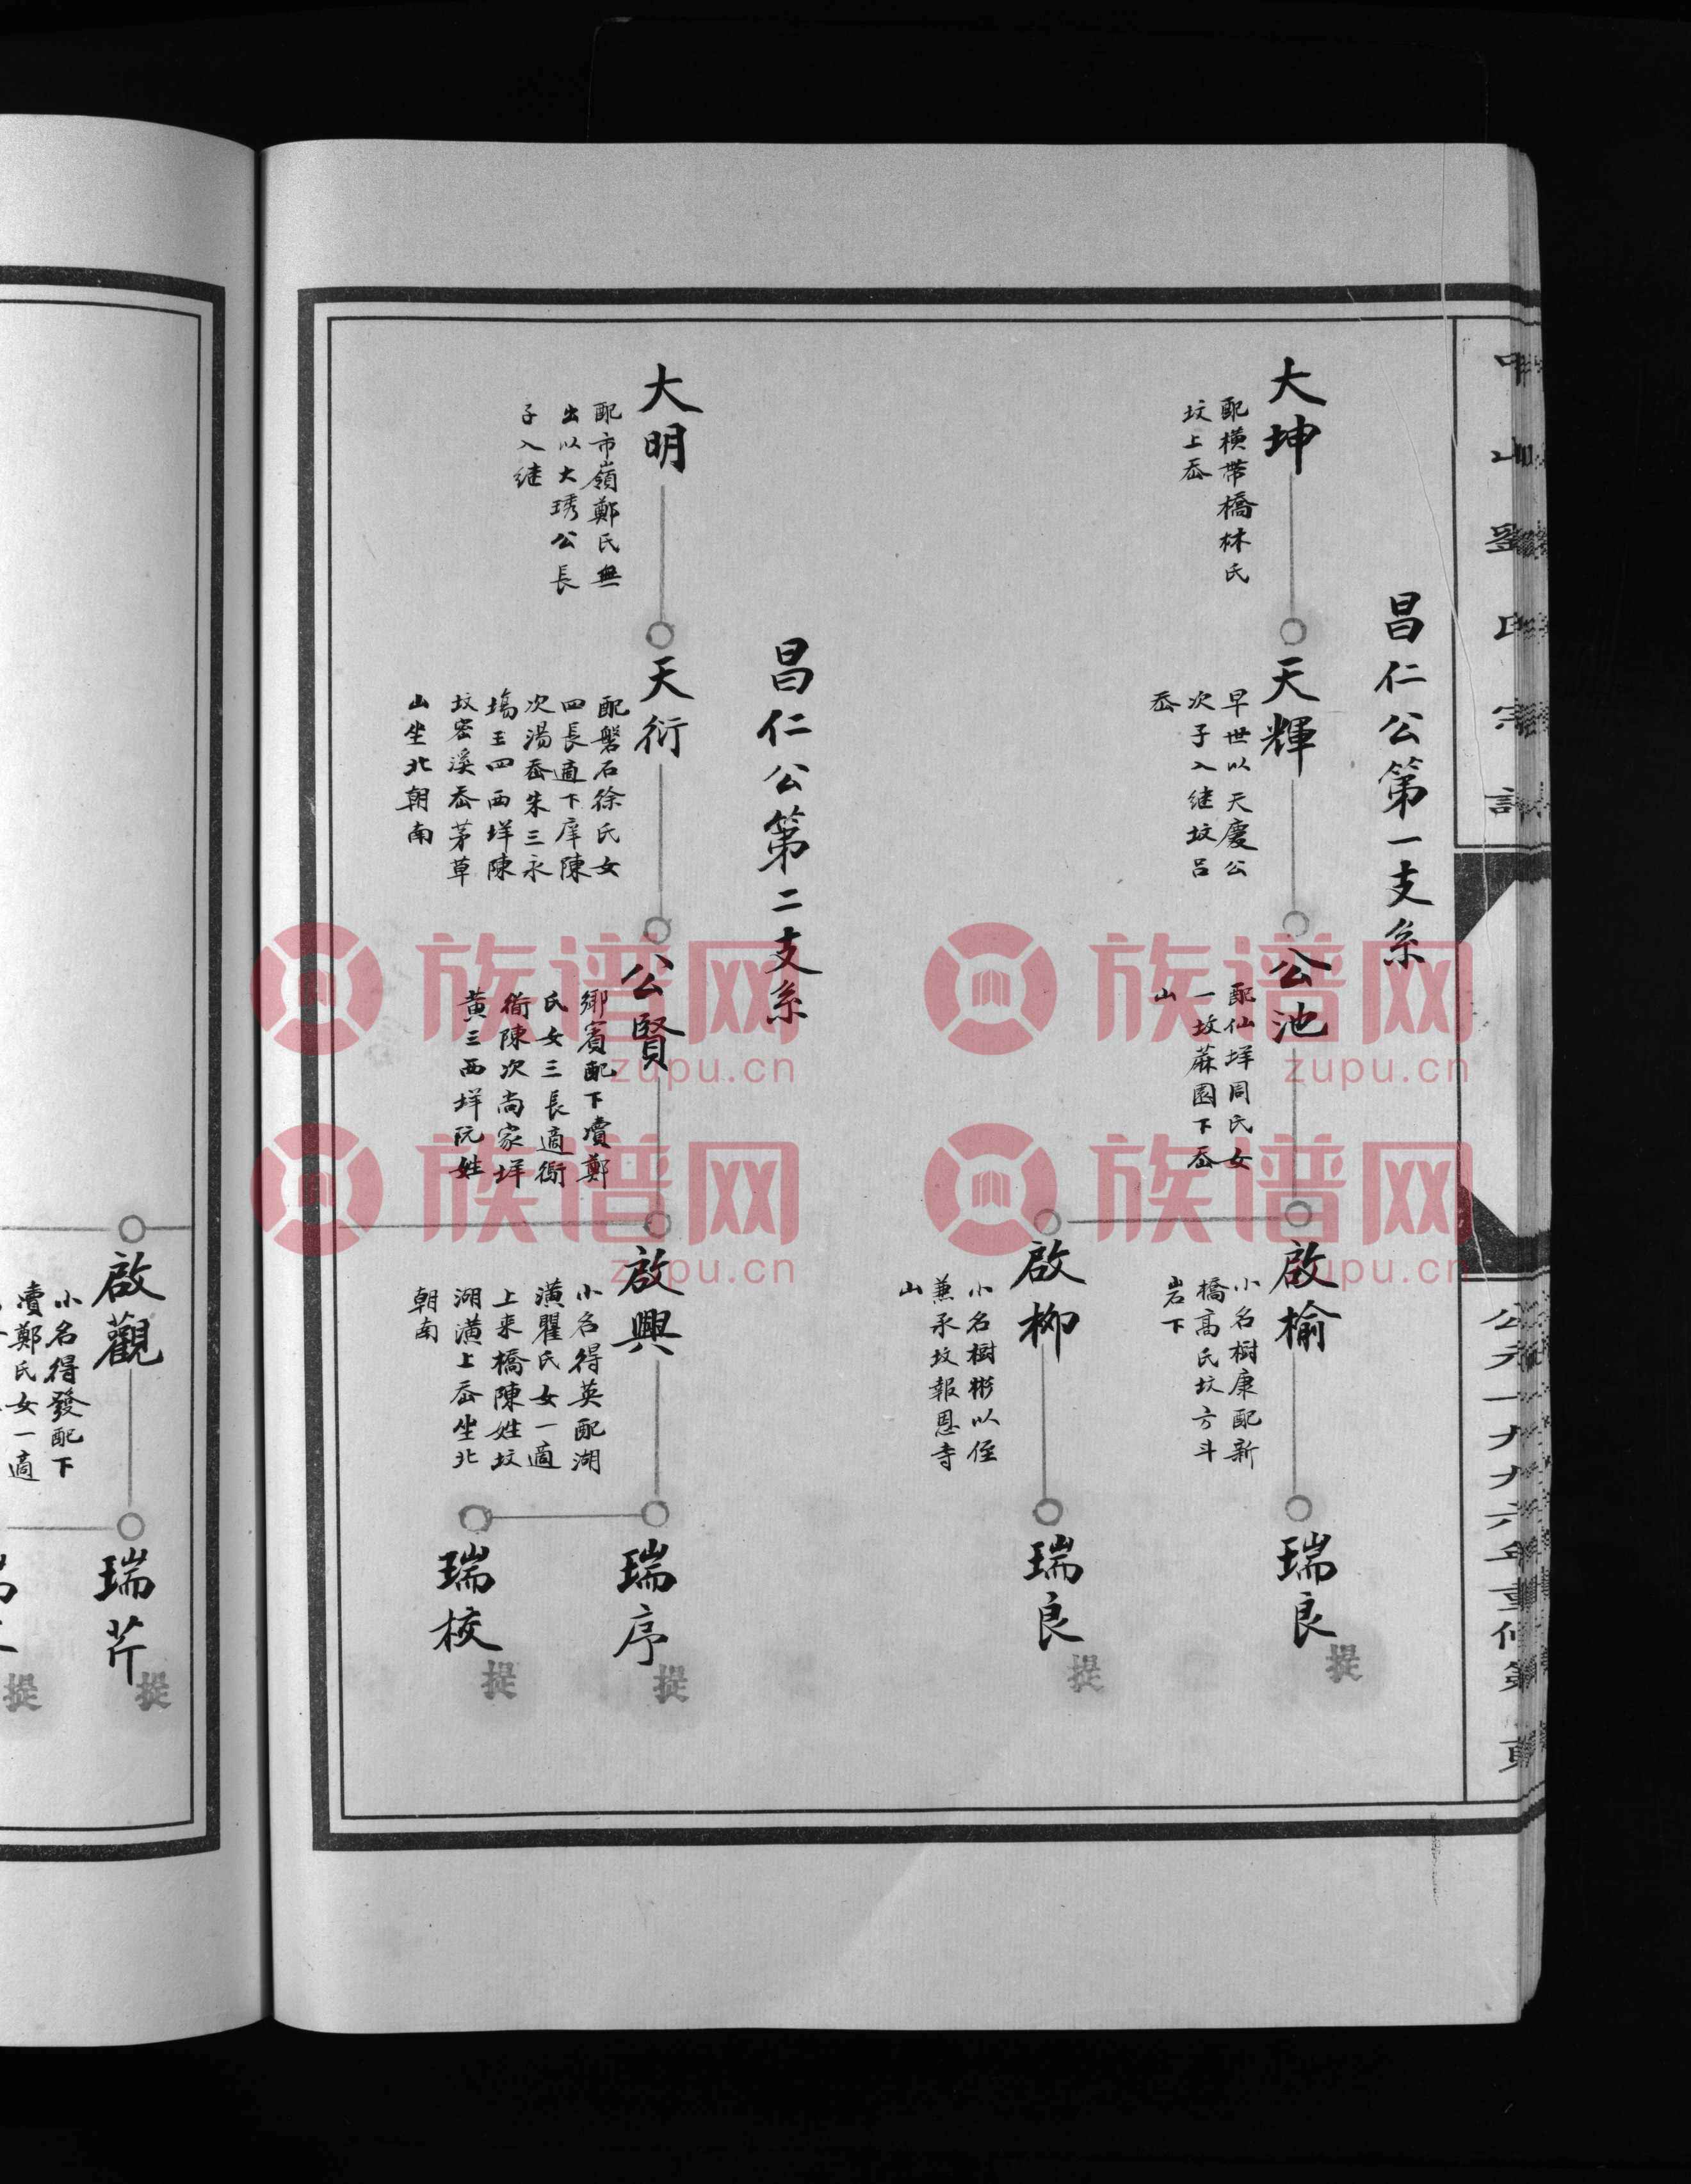 中山劉氏宗譜
公元一九九六年重修第 頁
昌仁公第一支系
大坤
配橫帶橋林氏
坟上岙
天輝
早世以天慶公
次子入继坟吕
岙
公池
配仙垟周氏女
一坟蔴園下岙
山
啟榆
小名樹康配新
橋高氏坟方斗
岩下
瑞良
提
啟柳
小名樹彬以侄
兼承坟報恩寺
山
瑞良
提
昌仁公第二支系
大明
配市嶺鄭氏無
出以大琇公長
子入继
天衍
配磐石徐氏女
四長適下庠陳
次湯岙朱三永
塲王四西垟陳
坟密溪岙茅草
山坐北朝南
公賢
鄉賓配下瀆鄭
氏女三長適衙
衙陳次尚家垟
黄三西垟阮姓
啟興
小名得英配湖
潢瞿氏女一適
上来橋陳姓坟
湖潢上岙坐北
朝南
瑞序
提
瑞校
提
啟觀
小名得發配下
瀆鄭氏女一適
瑞芹
提
提
族谱网
zupu.cn
族谱网
zupu.cn
族谱网
zupu.cn
族谱网
zupu.cn